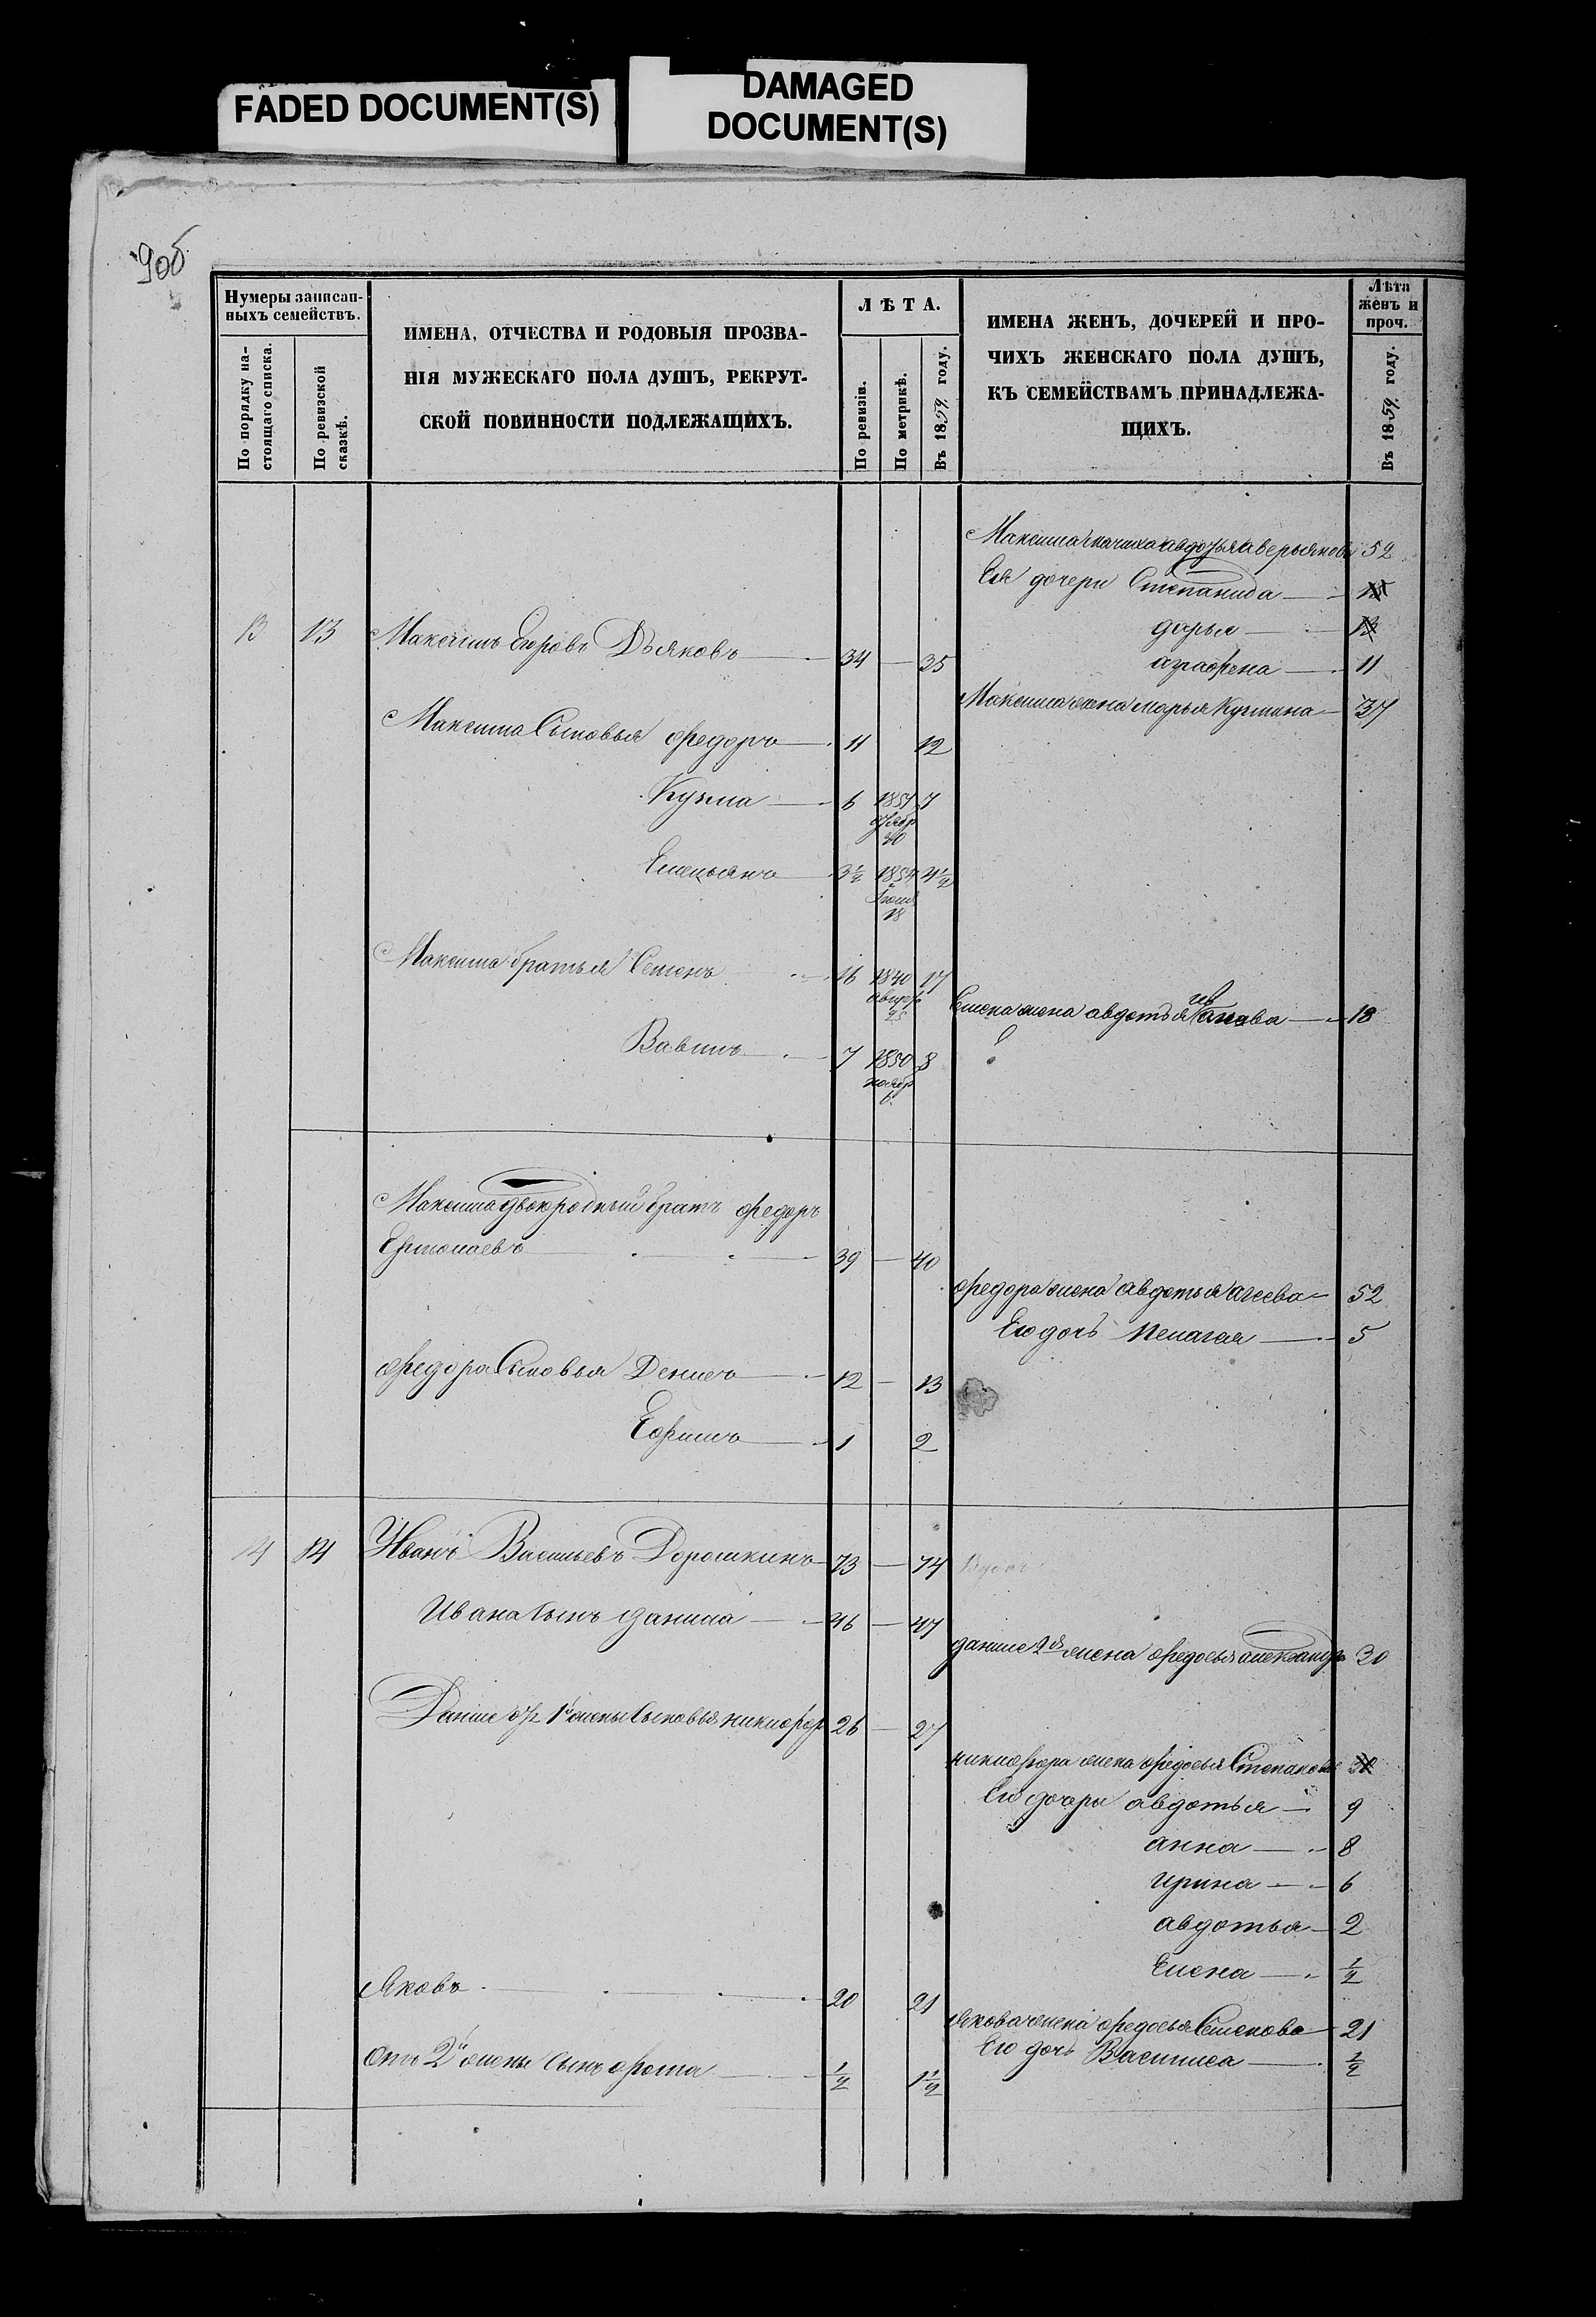 FADED DOCUMENT(S)
DAMAGED
DOCUMENT(S)
9об
Нумеры записан-
ныхъ семействъ.
По порядку на-
стоящаго списка.
По ревизской
сказкѣ.
ИМЕНА, ОТЧЕСТВА И РОДОВЫЯ ПРОЗВА-
НІЯ МУЖЕСКАГО ПОЛА ДУШЪ, РЕКРУТ-
СКОЙ ПОВИННОСТИ ПОДЛЕЖАЩИХЪ.
ЛѢТА.
По ревизіи.
По метрикѣ.
Въ 1859 году.
ИМЕНА ЖЕНЪ, ДОЧЕРЕЙ И ПРО-
ЧИХЪ ЖЕНСКАГО ПОЛА ДУШЪ,
КЪ СЕМЕЙСТВАМЪ ПРИНАДЛЕЖА-
ЩИХЪ.
Лѣта
женъ и
проч.
Въ 1859 году.
Максима мачиха авдотья аверьянова 52
Ея дочери Степанида
дарья
13 13 Максимъ Егоровъ Дьяковъ 34 — 35
аграфена 11
Максима жена марья Кузмина 37
Максима Сыновья федоръ 11 12
Кузма 6 1851 7
30
Емельянъ 3½ 1854 4½
18
Максима братья Семенъ 16 1840 17
25
Семена жена авдотья 18
Вавилъ 7 1850 8
ноябр
6
Максима двоюродный братъ федоръ
Ермолаевъ 39 — 40
федора жена авдотья агеева 52
Его дочь пелагая 5
федора Сыновья Денисъ 12 — 13
Ефимъ 1 2
14 14 Иванъ Васильевъ Дорошкинъ 73 — 74 Вдовъ
Ивана Сынъ данила 46 — 47
данилы 2я жена федосья александр 30
Данилы отъ 1й жены Сыновья никифоръ 26 — 27
никифора жена федосья Степанова
Его дочери авдотья 9
анна 8
ирина 6
авдотья 2
Елена ½
Яковъ 20 21
якова жена федосья Семенова 21
Его дочь Василиса ½
Отъ 2й жены Сынъ фома ½ 1½